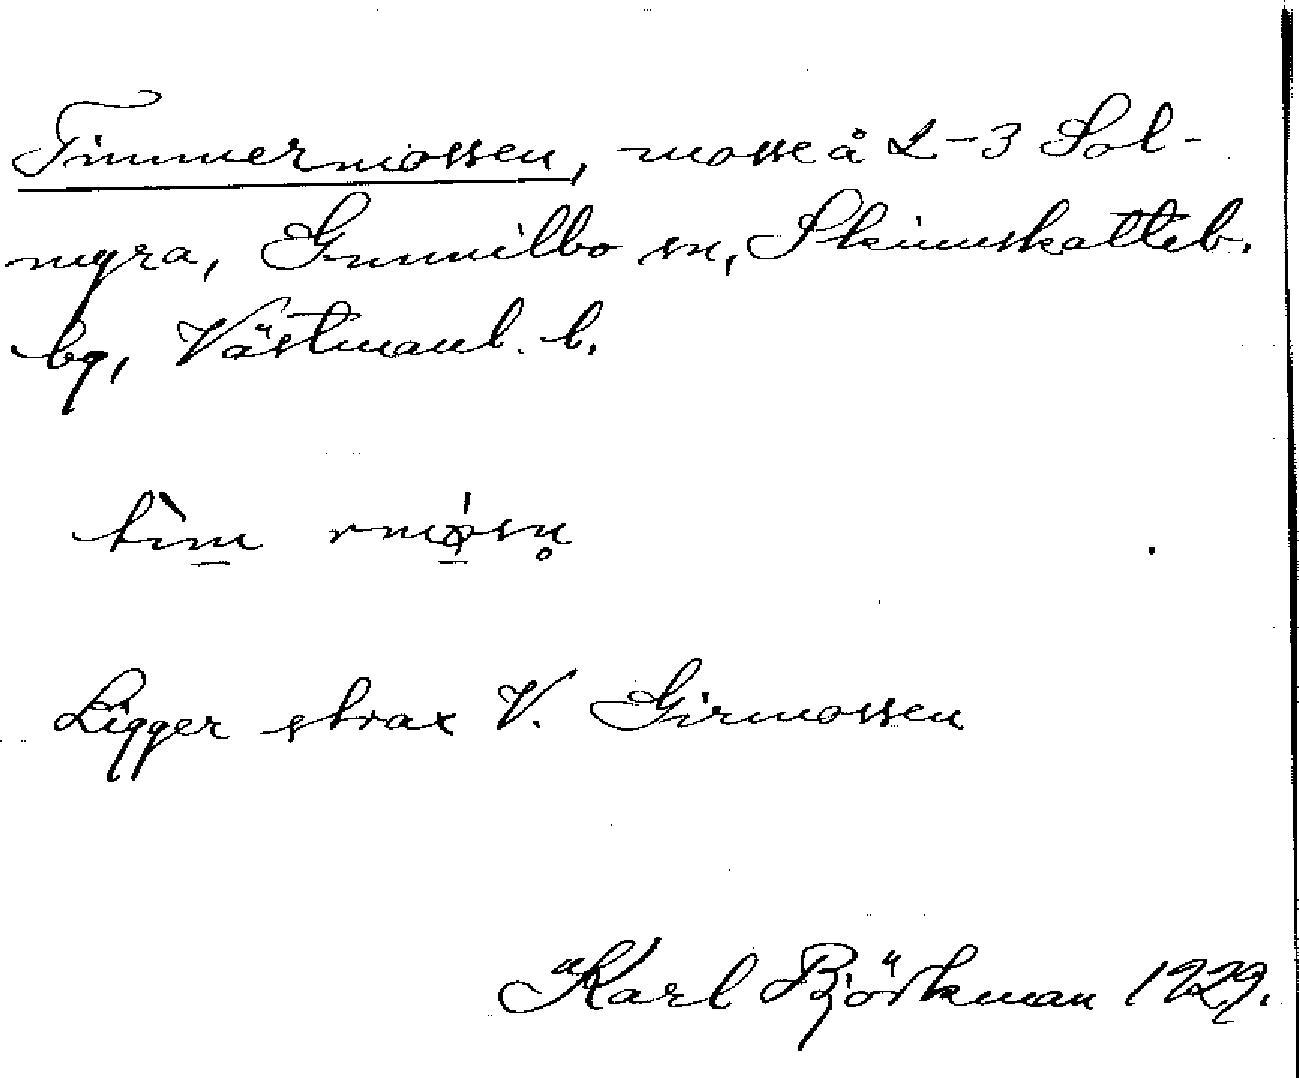 Timmermossen, mosse å 2-3 Sol-
myra, Gunnilbo sn, Skinnskatteb.
bg, Västmanl. l.
tìm rmósn̥
Ligger strax V. Girmossen
Karl Björkman 1929.